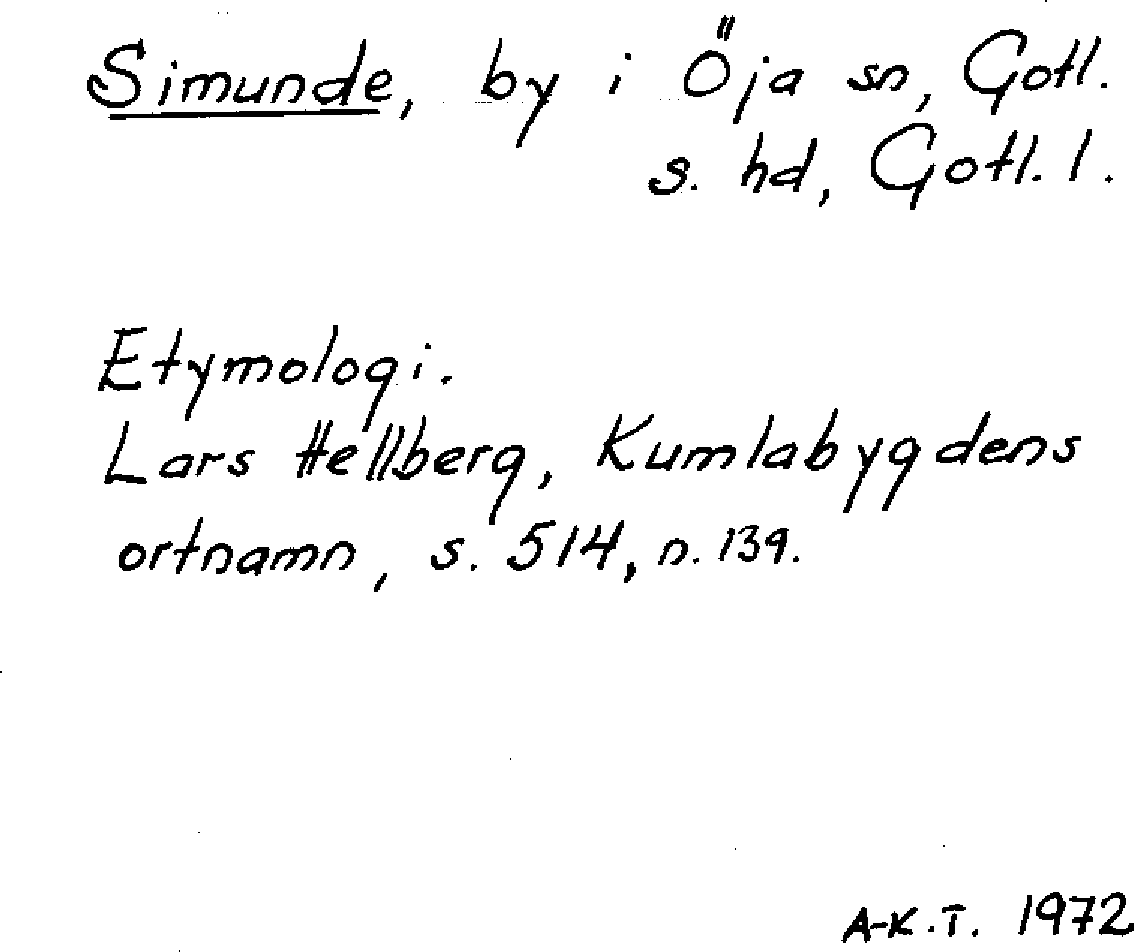 Simunde, by i Öja sn, Gotl.
s. hd, Gotl. l.
Etymologi.
Lars Hellberg, Kumlabygdens
ortnamn, s. 514, n. 139.
A-K.T. 1972